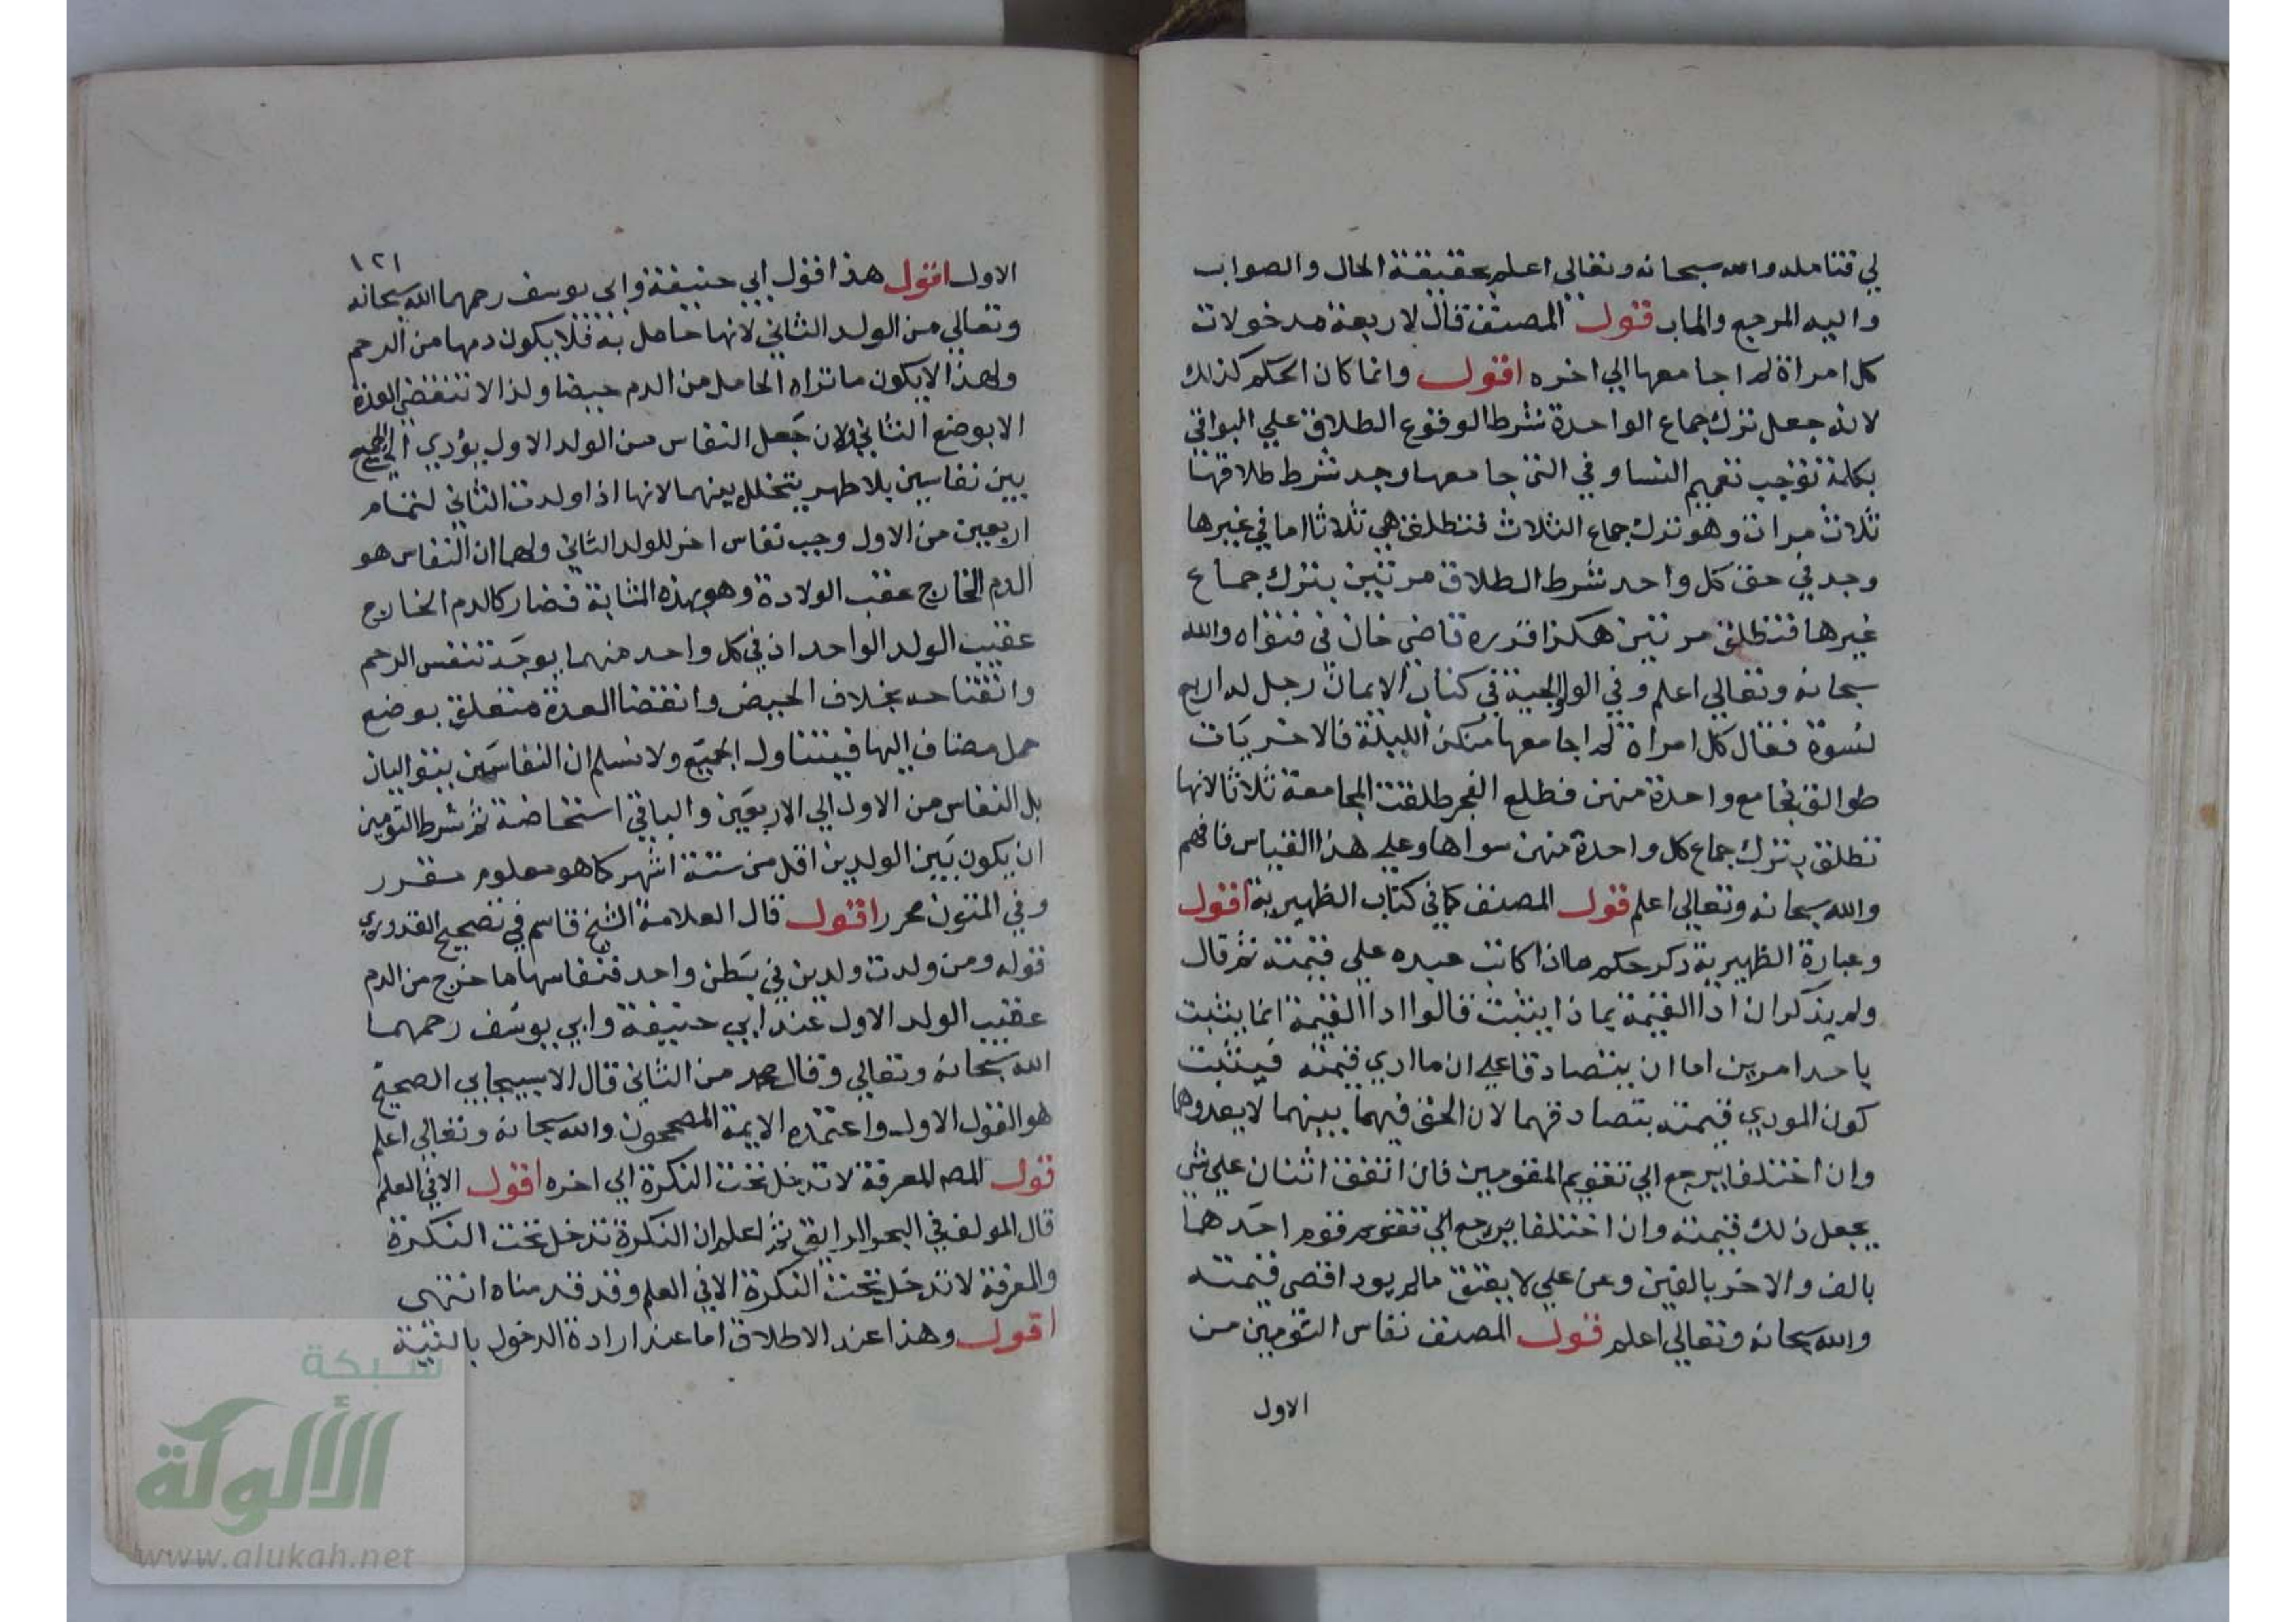 لي فتامله والله سبحانه وتعالى اعلم بحقيقة الحال والصواب
واليه المرجع والماب قول المصنف قال لاربعة مدخولات
كل امراة لم اجامعها الي اخره اقول وانما كان الحكم كذلك
لانه جعل ترك جماع الواحدة شرطا لوقوع الطلاق علي البواقي
بكلمة توجب تعميم النسا وفي التي جامعها وجد شرط طلاقها
ثلاث مرات وهو ترك جماع الثلاث فتطلق هي ثلاثا اما في غيرها
وجد في حق كل واحد شرط الطلاق مرتين بترك جماع
غيرها فتطلق مرتين هكذا قرره قاضي خان في فتواه والله
سبحانه وتعالي اعلم وفي الولوالجية في كتاب الايمان رجل له اربع
نسوة فقال كل امراة لم اجامعها منكن الليلة فالاخريات
طوالق فجامع واحدة منهن فطلع الفجر طلقت المجامعة ثلاثا لانها
تطلق بترك جماع كل واحدة منهن سواها وعلي هذا القياس فافهم
والله سبحانه وتعالي اعلم قول المصنف كما في كتاب الظهيرية اقول
وعبارة الظهيرية ذكر حكم ما اذا كاتب عبده علي قيمته ثم قال
ولم يذكر ان اداالقيمة بماذا يثبت قالوا اداالقيمة انما يثبت
باحد امرين اما ان يتصادقا علي ان ما ادي قيمته فيثبت
كون المودي قيمته بتصادقهما لان الحق فيهما بينهما لا يعدوهما
وان اختلفا يرجع الي تقويم المقومين فان اتفق اثنان علي شي
يجعل ذلك قيمته وان اختلفا يرجع الي تقوم قوم احدهما
بالف والاخر بالفين وعن علي لا يعتق مالم يود اقصي قيمته
والله سبحانه وتعالي اعلم قول المصنف نفاس التومين من
الاول
١٢١
الاول اقول هذا قول ابي حنيفة وابي يوسف رحمهما الله سبحانه
وتعالي من الولد الثاني لانها حامل به فلا يكون دمها من الرحم
ولهذا لا يكون ما تراه الحامل من الدم حيضا ولذا لا تنقضي العدة
الا بوضع الثاني ولان جعل النفاس من الولد الاول يؤدي الي الجمع
بين نفاسين بلا طهر يتخلل بينهما لانها اذا ولدت الثاني لتمام
اربعين من الاول وجب نفاس اخر للولد الثاني ولهما ان النفاس هو
الدم الخارج عقب الولادة وهو بهذه المثابة فصار كالدم الخارج
عقيب الولد الواحد اذ في كل واحد منهما يوجد تنفس الرحم
وانفتاحه بخلاف الحيض وانقضا العدة متعلق بوضع
حمل مضاف اليها فيتناول الجميع ولا نسلم ان النفاسين يتواليان
بل النفاس من الاول الي الاربعين والباقي استحاضة ثم شرط التومين
ان يكون بين الولدين اقل من ستة اشهر كما هو معلوم مقرر
وفي المتون محرر اقول قال العلامة الشيخ قاسم في تصحيح القدوري
قوله ومن ولدت ولدين في بطن واحد فنفاسها ما خرج من الدم
عقيب الولد الاول عند ابي حنيفة وابي يوسف رحمهما
الله سبحانه وتعالي وقال محمد من الثاني قال الاسبيجابي الصحيح
هو القول الاول واعتمده الايمة المصححون والله سبحانه وتعالي اعلم
قول المص المعرفة لا تدخل تحت النكرة الي اخره اقول الا في العلم
قال المولف في البحر الرايق ثم اعلم ان النكرة تدخل تحت النكرة
والمعرفة لا تدخل تحت النكرة الا في العلم وقد قدمناه انتهى
اقول وهذا عند الاطلاق اما عند ارادة الدخول بالنية
شبكة
الألوكة
www.alukah.net